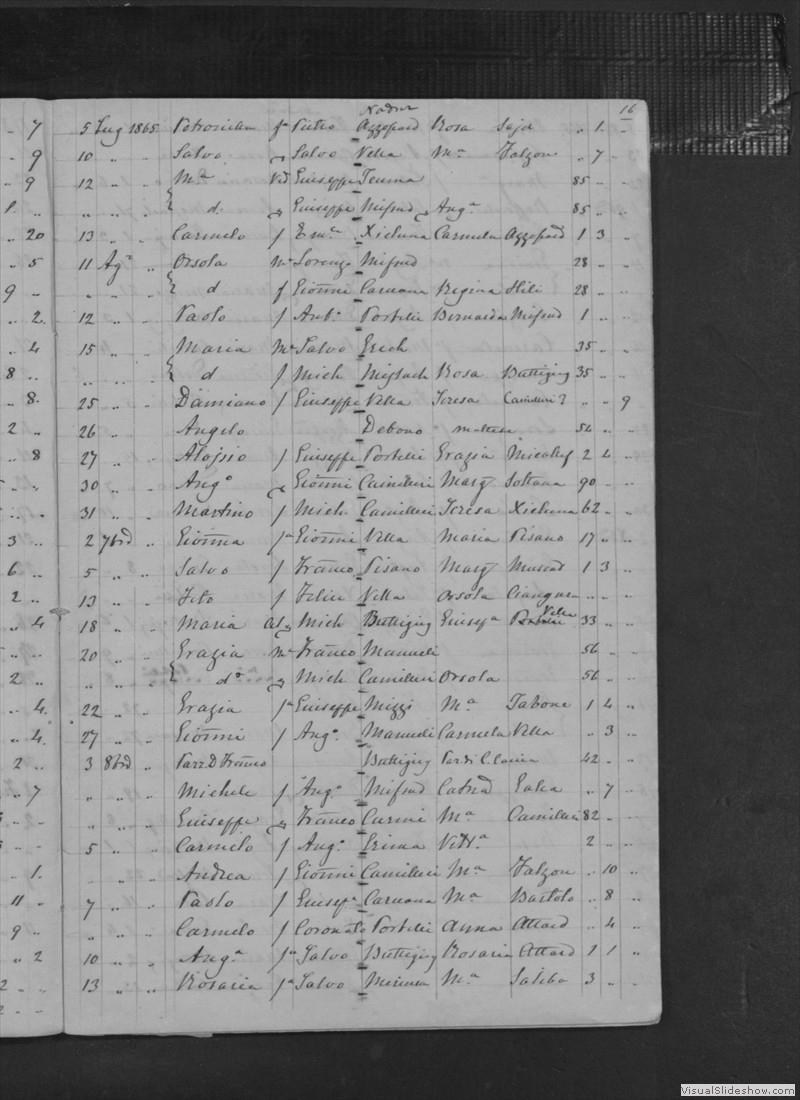 Nadur 16
.. 7 5 Lug 1865 Petronilla fa Pietro Azzopard Rosa Said .. 1 ..
.. 9 10 .. .. Salvo Salvo Vella Ma Falzon .. 7 ..
.. 9 12 .. .. Ma Vd Giuseppe Teuma 85 .. ..
.. .. .. d. Giuseppe Mifsud Anga 85 .. ..
.. 20 13 .. .. Carmelo f Emle Xicluna Carmela Azzopard 1 3 ..
.. 5 11 Ago .. Orsola Mo Lorenzo Mifsud 28 .. ..
9 .. .. .. .. d f Giovnni Caruana Regina Hili 28 .. ..
.. 2. 12 .. .. Paolo f Anto Portelli Bernarda Mifsud 1 .. ..
.. 4 15 .. .. Maria Mo Salvo Grech 35 .. ..
8 .. .. .. .. d f Mich Mifsud Rosa Buttigieg 35 .. ..
.. 8. 25 .. .. Damiano f Giuseppe Vella Teresa Camilleri ? .. .. 9
2 .. 26 .. .. Angelo Debono maltese 54 .. ..
.. 8 27 .. .. Aloisio f Giuseppe Portelli Grazia Micalef 2 4 ..
30 .. .. Ango Giovnni Camilleri Marg Sultana 90 .. ..
31 .. .. Martino f Mich Camilleri Teresa Xicluna 62 .. ..
3 .. 2 7brd .. Giovnna fa Giovnni Vella Maria Pisano 17 .. ..
6 .. 5 .. .. Salvo f Franco Pisano Marg Muscat 1 3 ..
2 .. 13 .. .. Tito f Felice Vella Orsola .. .. ..
.. 4 18 .. .. Maria Mich Buttigieg Giusepa Vella 33 .. ..
20 .. .. Grazia Mo Franco Manueli 56 .. ..
2 .. .. .. .. do Mich Camilleri Orsola 56 .. ..
.. 4. 22 .. .. Grazia fa Giuseppe Mizzi Ma Tabone 1 4 ..
.. 4. 27 .. .. Giovnni f Ango Manueli Carmela Vella .. 3 ..
2 .. 3 8brd .. Parr. D Franco Buttigieg 42 .. ..
.. 7 .. .. .. Michele f Ango Mifsud Catnd Galea .. 7 ..
.. .. .. Giuseppe Franco Curmi Ma Camilleri 82 .. ..
5 .. .. Carmelo f Ango Grima Vitta 2 .. ..
.. 1. .. .. .. Andrea f Giovnni Camilleri Ma Falzon .. 10 ..
11 .. 7 .. .. Paolo f Giusepe Caruana Ma Bartolo .. 8 ..
9 .. .. .. .. Carmelo f Coronato Portelli Anna Attard .. 4 ..
.. 2 10 .. .. Anga fa Salvo Buttigieg Rosaria Attard 1 1 ..
2 .. 13 .. .. Rosaria fa Salvo Ma Saliba 3 .. ..
VisualSlideshow.com